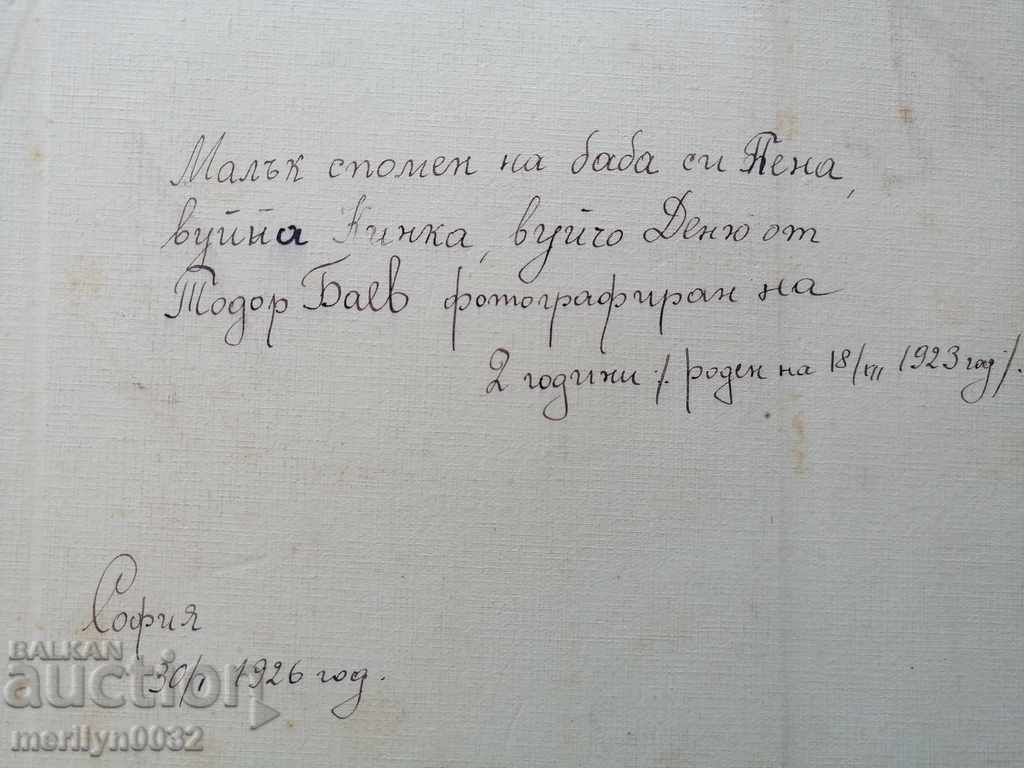 Малък спомен на баба си Пена,
вуйна Кинка, вуйчо Деню от
Тодор Баев фотографиран на
2 години /. роден на 18/VII 1923 год/.
София
30/I 1926 год.
BALKAN
auction
merilyn0032